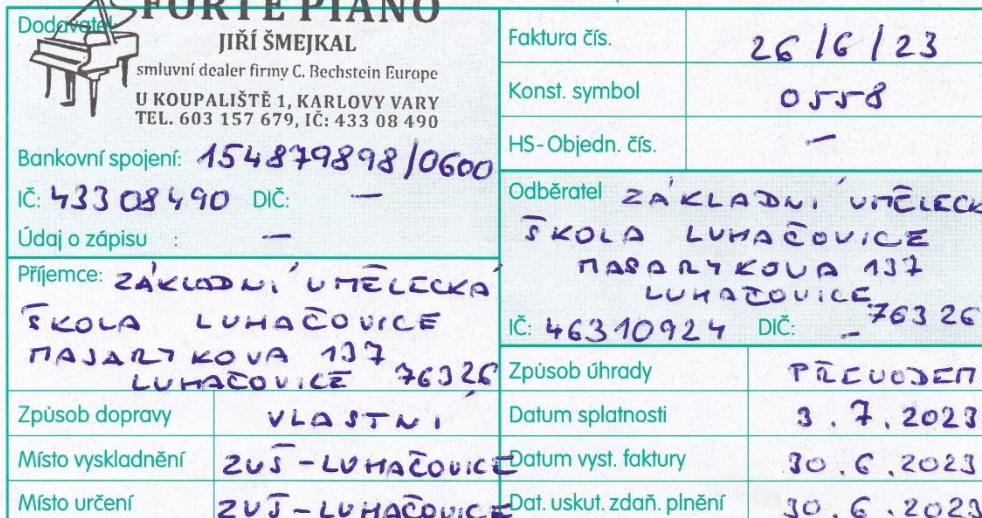 FORTE PIANO
Dodavatel
JIŘÍ ŠMEJKAL
smluvní dealer firmy C. Bechstein Europe
U KOUPALIŠTĚ 1, KARLOVY VARY
TEL. 603 157 679, IČ: 433 08 490
Bankovní spojení: 154879898/0600
IČ: 43308490 DIČ: —
Údaj o zápisu : —
Příjemce: ZÁKLADNÍ UMĚLECKÁ
ŠKOLA LUHAČOVICE
MASARYKOVA 137
LUHAČOVICE 76326
Způsob dopravy VLASTNÍ
Místo vyskladnění ZUŠ-LUHAČOVICE
Místo určení ZUŠ-LUHAČOVICE
Faktura čís. 26/6/23
Konst. symbol 0558
HS-Objedn. čís. —
Odběratel ZÁKLADNÍ UMĚLECK
ŠKOLA LUHAČOVICE
MASARYKOVA 137
LUHAČOVICE
76326
IČ: 46310924 DIČ: —
Způsob úhrady PŘEVODEM
Datum splatnosti 3.7.2023
Datum vyst. faktury 30.6.2023
Dat. uskut. zdaň. plnění 30.6.2023